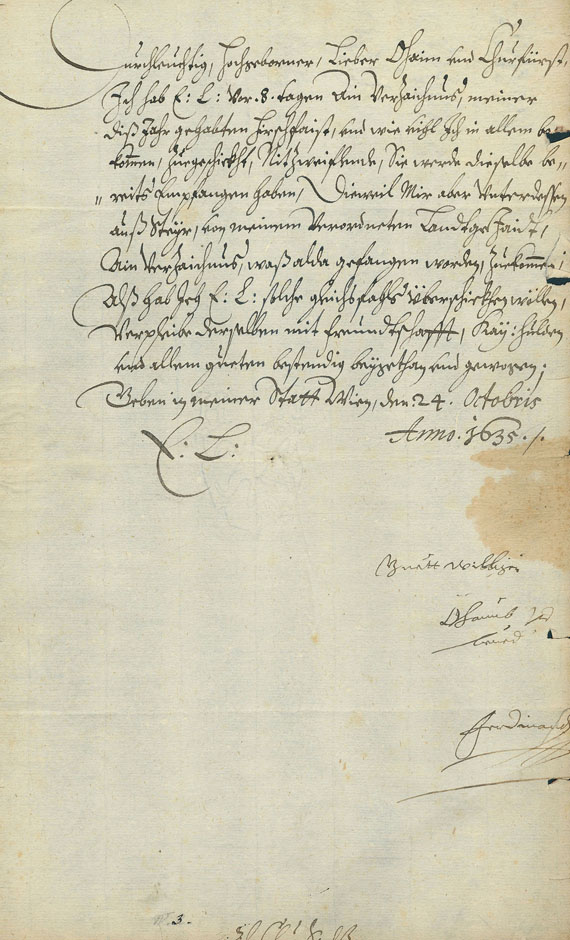 Durchleuchtig, Hochgeborner, Lieber Ohaim und Churfürst,
Ich hab E: L: Vor. 8. tagen Ain Verzaichnus, meiner
diß Jahr gehabten Hirschfaist, und wie vihl Ich in allem be
kommen, Zuegeschickht, Nit Zweiflende, Sie werde dieselbe be⸗
reits Empfangen haben, Dieweil Mir aber Unterdessen
auß Steyr, von meinem Verordneten Landt
Ain Verzaichnus, waß alda gefangen worden, Zuekommen;
Alß hab Ich E: L: solche gleichsfahls Überschickhen wöllen,
Verpleibe derselben mit freundtschafft, Kay: hulden
und allem gueten bestendig beygethan und gewogen;
Geben in meiner Statt Wien, den. 24. Octobris
Anno. 1635. /.
E: L:
Guett williger
Ohaimb
Ferdinand
3.